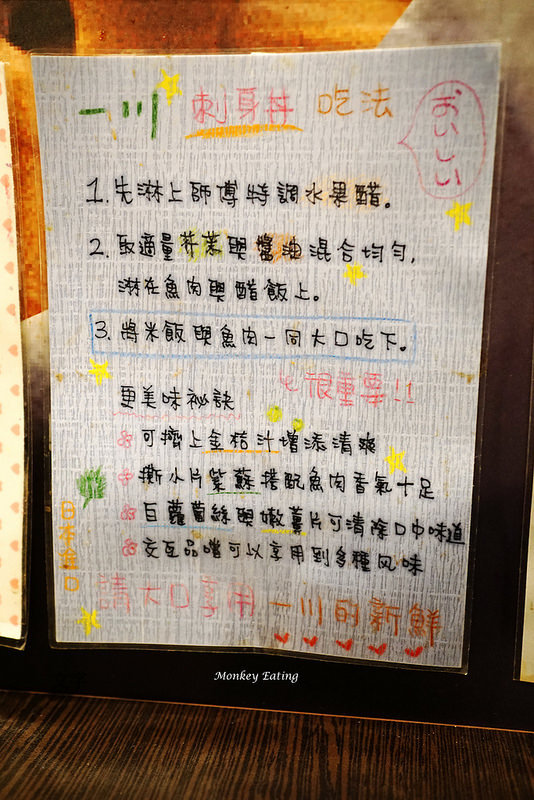 一川 刺身丼 吃法
おいしい
1. 先淋上師傅特調水果醋。
2. 取適量芥茉與醬油混合均勻,
淋在魚肉與醋飯上。
3. 將米飯與魚肉一同大口吃下。
很重要!!
更美味祕訣
可擠上金桔汁增添清爽
撕小片紫蘇搭配魚肉香氣十足
白蘿蔔絲與嫩薑片可清除口中味道
交互品嚐可以享用到多種风味
日本進口
請大口享用 一川的新鮮
Monkey Eating